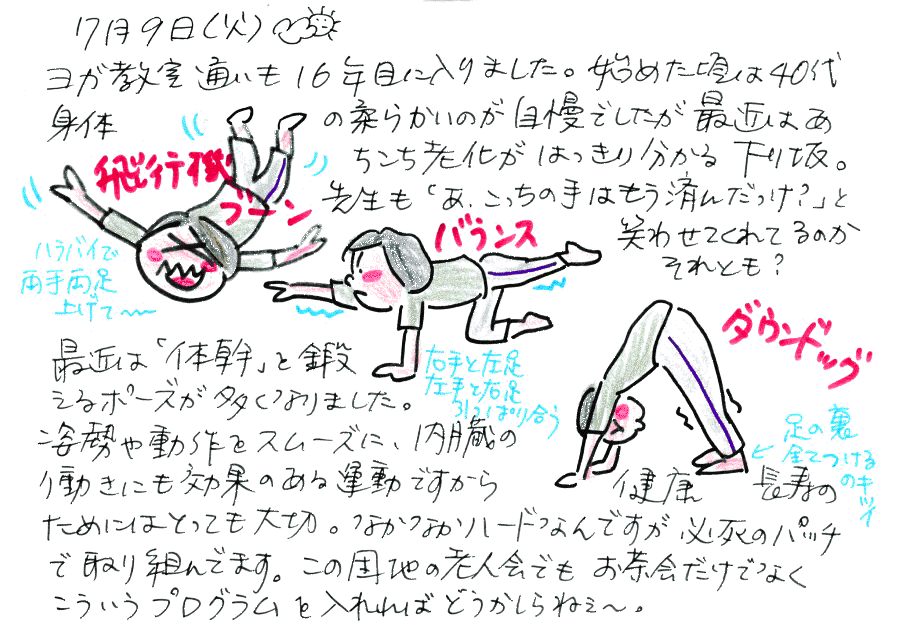 7月9日(火)
ヨガ教室通いも16年目に入りました。始めた頃は40代
身体の柔らかいのが自慢でしたが最近はあ
ちこち老化がはっきり分かる下り坂。
先生も「あ、こっちの手はもう済んだっけ?」と
笑わせてくれてるのか
それとも?
飛行機
ブーン
ハラバイで
両手両足
上げて〜〜
バランス
右手と左足
左手と右足
引っぱり合う
ダウンドッグ
足の裏
全てつける
のキツイ
最近は「体幹」を鍛
えるポーズが多くなりました。
姿勢や動作をスムーズに、内臓の
働きにも効果のある運動ですから
健康長寿の
ためにはとっても大切。なかなかハードなんですが必死のパッチ
で取り組んでます。この団地の老人会でもお茶会だけでなく
こういうプログラムを入れればどうかしらねェ〜。